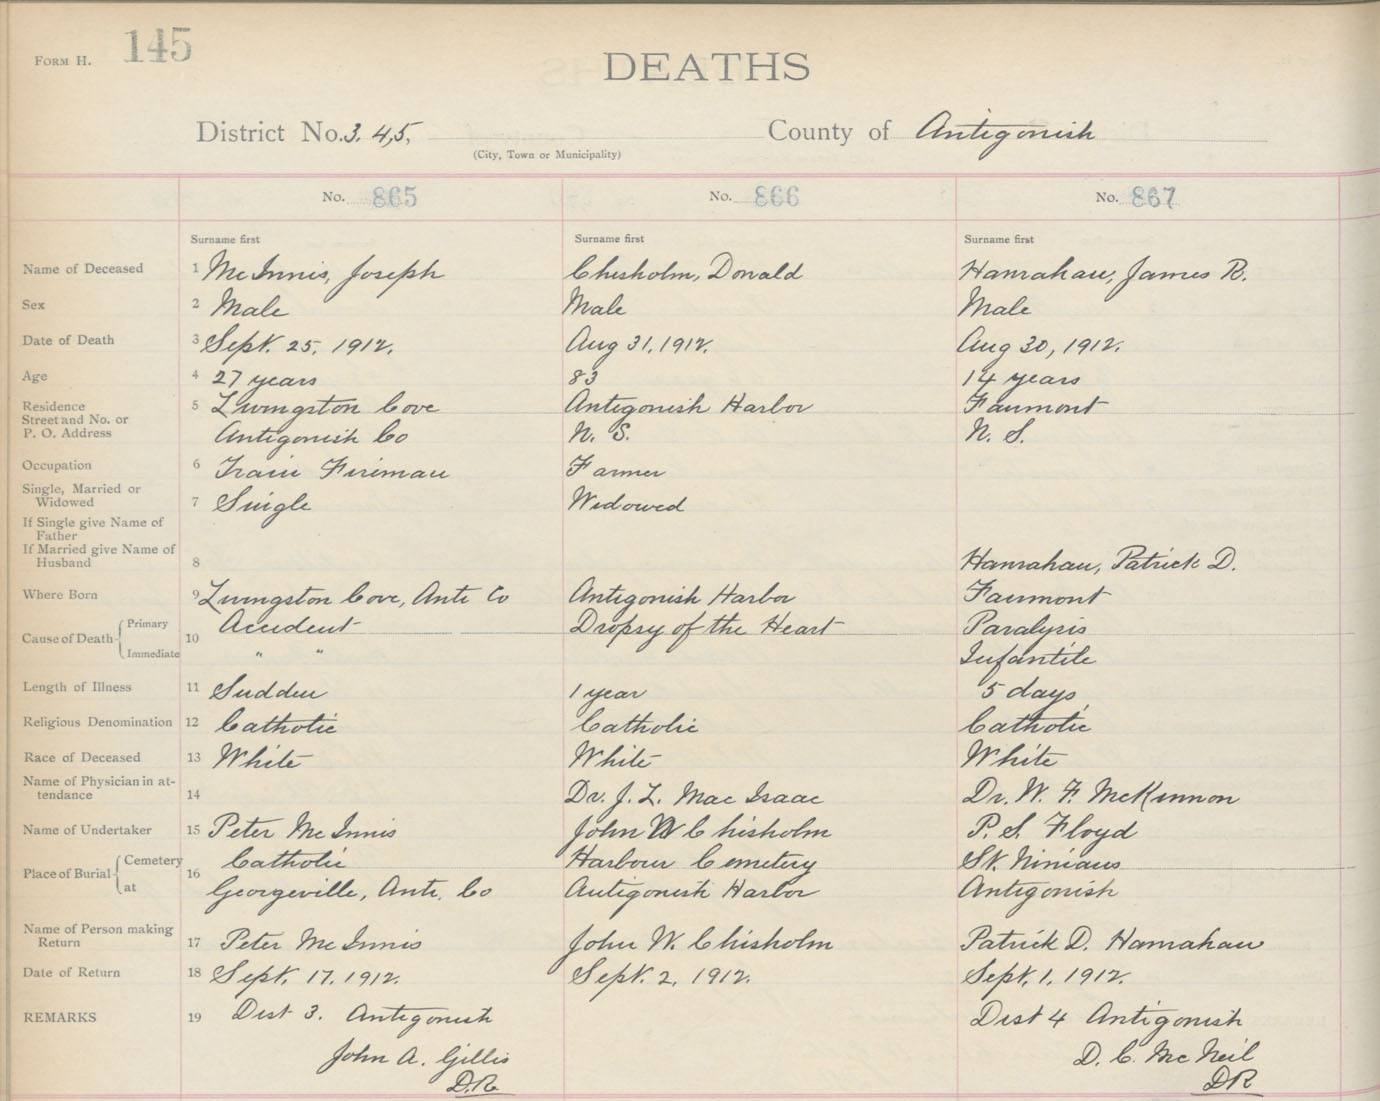 FORM H. 145
DEATHS
District No. 3, 4, 5, County of Antigonish
(City, Town or Municipality)
No. 865 No. 866 No. 867
Surname first Surname first Surname first
Name of Deceased 1 McInnis, Joseph Chisholm, Donald Hanrahan, James R.
Sex 2 Male Male Male
Date of Death 3 Sept. 25, 1912. Aug 31, 1912. Aug 30, 1912.
Age 4 27 years 83 14 years
Residence 5 Livingston Cove Antigonish Harbor Fairmont
Street and No. or
P. O. Address Antigonish Co N. S. N. S.
Occupation 6 Train Fireman Farmer
Single, Married or
Widowed 7 Single Widowed
If Single give Name of
Father
If Married give Name of
Husband 8 Hanrahan, Patrick D.
Where Born 9 Livingston Cove, Ante Co Antigonish Harbor Fairmont
Cause of Death Primary 10 Accident Dropsy of the Heart Paralysis
Immediate " " Infantile
Length of Illness 11 Sudden 1 year 5 days
Religious Denomination 12 Catholic Catholic Catholic
Race of Deceased 13 White White White
Name of Physician in at-
tendance 14 Dr. J. L. Mac Isaac Dr. W. F. McKinnon
Name of Undertaker 15 Peter McInnis John W Chisholm P. S. Floyd
Place of Burial Cemetery 16 Catholic Harbour Cemetery St. Ninians
at Georgeville, Ante. Co Antigonish Harbor Antigonish
Name of Person making
Return 17 Peter McInnis John W. Chisholm Patrick D. Hanrahan
Date of Return 18 Sept. 17, 1912. Sept. 2, 1912. Sept. 1, 1912.
REMARKS 19 Dist 3. Antigonish Dist 4 Antigonish
John A. Gillis D. C. McNeil
D.R. DR